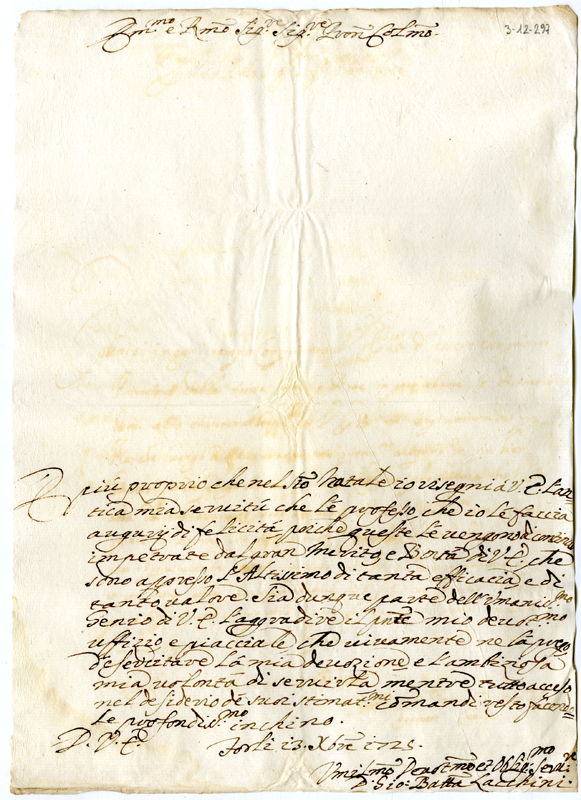 Em.mo e Rmo Sig.re Sig.re Pron Colmo.
3-12-297
È più proprio che nel Sto Natale io risegni à V. E. l'an
tica mia servitù che le professo, che io le faccia
augurij di felicità, poiche queste le vengono di continuo
impetrate dal gran Merito, e Bontà di V. E. che
sono appresso l'Altissimo di tanta efficacia e di
tanto valore. Sia dunque parte dell'Umanis.mo
Genio di V. E. l'aggradire il pnte mio devot.mo
uffizio e piacciale che vivamente ne la prego
d'esercitare la mia devozione e l'ambiziosa
mia volontà di servirla mentre tutto acceso
nel desiderio de suoi stimat.mi comandi resto facendo
le profondis.mo inchino.
D. V. E.
Forlì 13. Xbre 1725.
Umilmo Devotmo et Oblig.mo Serv.re
D. Gio: Batta Lacchini.